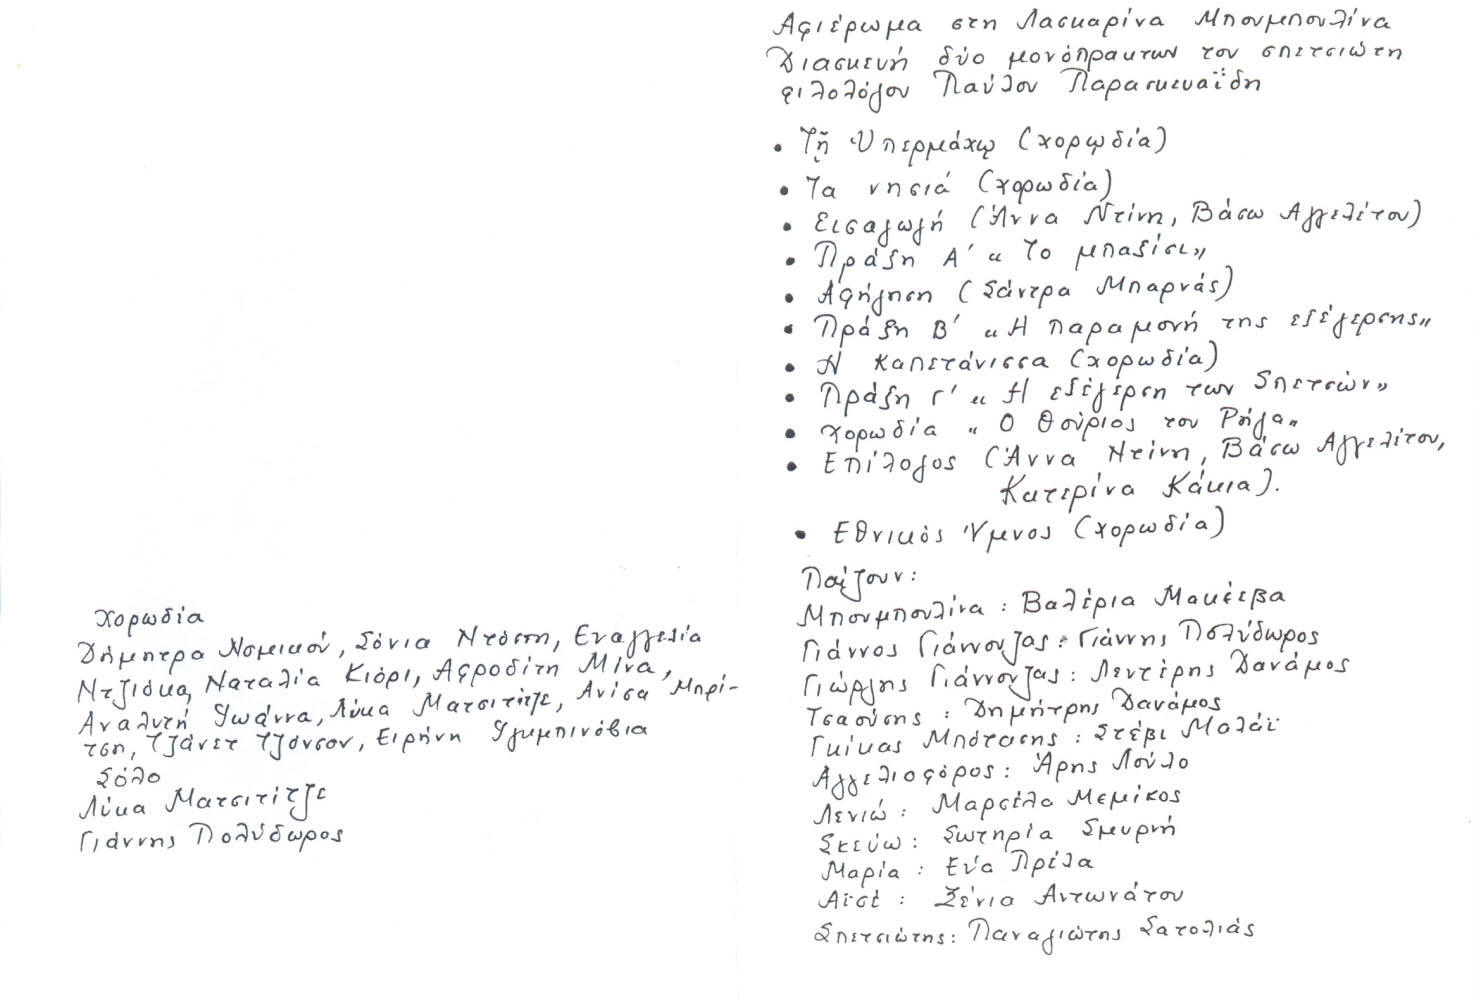 Χορωδία
Δήμητρα Νομικού, Σόνια Ντόστη, Ευαγγελία
Ντζιόκα, Ναταλία Κιόρι, Αφροδίτη Μίνα,
Αναλυτή Ιωάννα, Λύκα Ματσιτίτζε, Ανίσα Μπρί-
τση, Τζάνετ Τζόνσον, Ειρήνη
Σόλο
Λύκα Ματσιτίτζε
Γιάννης Πολύδωρος
Αφιέρωμα στη Λασκαρίνα Μπουμπουλίνα
Διασκευή δύο μονόπρακτων του σπετσιώτη
φιλολόγου Παύλου Παρασκευαΐδη
• Τῇ Ὑπερμάχῳ (χορῳδία)
• Τα νησιά (χορωδία)
• Εισαγωγή (Άννα Ντίνη, Βάσω Αγγελίτου)
• Πράξη Α΄ « Το μπαξίσι»
• Αφήγηση (Σάντρα Μπαρνάς)
• Πράξη Β΄ « Η παραμονή της εξέγερσης»
• Η καπετάνισσα (χορωδία)
• Πράξη Γ΄ « Η εξέγερση των Σπετσών»
• χορωδία « Ο Θούριος του Ρήγα»
• Επίλογος (Άννα Ντίνη, Βάσω Αγγελίτου,
Κατερίνα Κάκια).
• Εθνικός Ύμνος (χορωδία)
Παίζουν:
Μπουμπουλίνα : Βαλέρια Μακέεβα
Γιάννος Γιάννουζας : Γιάννης Πολύδωρος
Γιώργης Γιάννουζας : Λευτέρης Δανάμος
Τσαούσης : Δημήτρης Δανάμος
Γκίκας Μπότασης : Στέβι Μαλάϊ
Αγγελιοφόρος : Άρης Λούλο
Λενιώ : Μαρσέλα Μεμίκος
Σκεύω : Σωτηρία Σμυρνή
Μαρία : Εύα Πρέλα
Αϊσέ : Ξένια Αντωνάτου
Σπετσιώτης : Παναγιώτης Σατολιάς